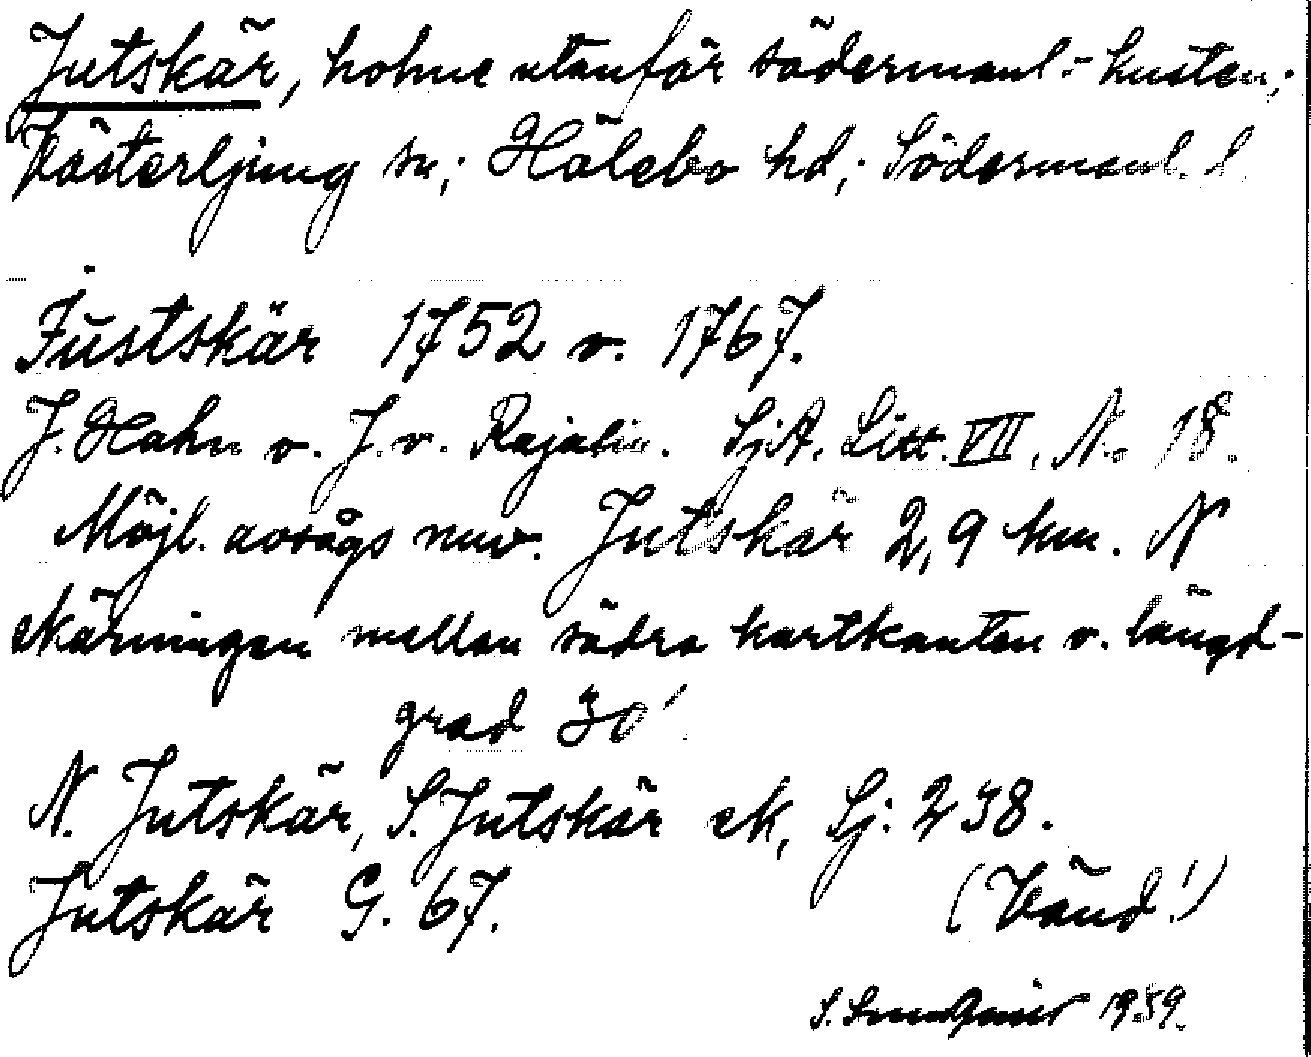 Jutskär, holme utanför södermanl.-kusten;
Västerljung sn; Hölebo hd; Södermanl. l
Justskär 1752 o. 1767.
J. Hahn o. J. v. Rajalin. SjA. Litt. VII, No 18.
Möjl. avsågs nuv. Jutskär 2,9 km. N
skärningen mellan södra kartkanten o. längd-
grad 30'.
N. Jutskär, S. Jutskär ek, Sj: 238.
Jutskär G. 67.
(Vänd!)
S. 1959.